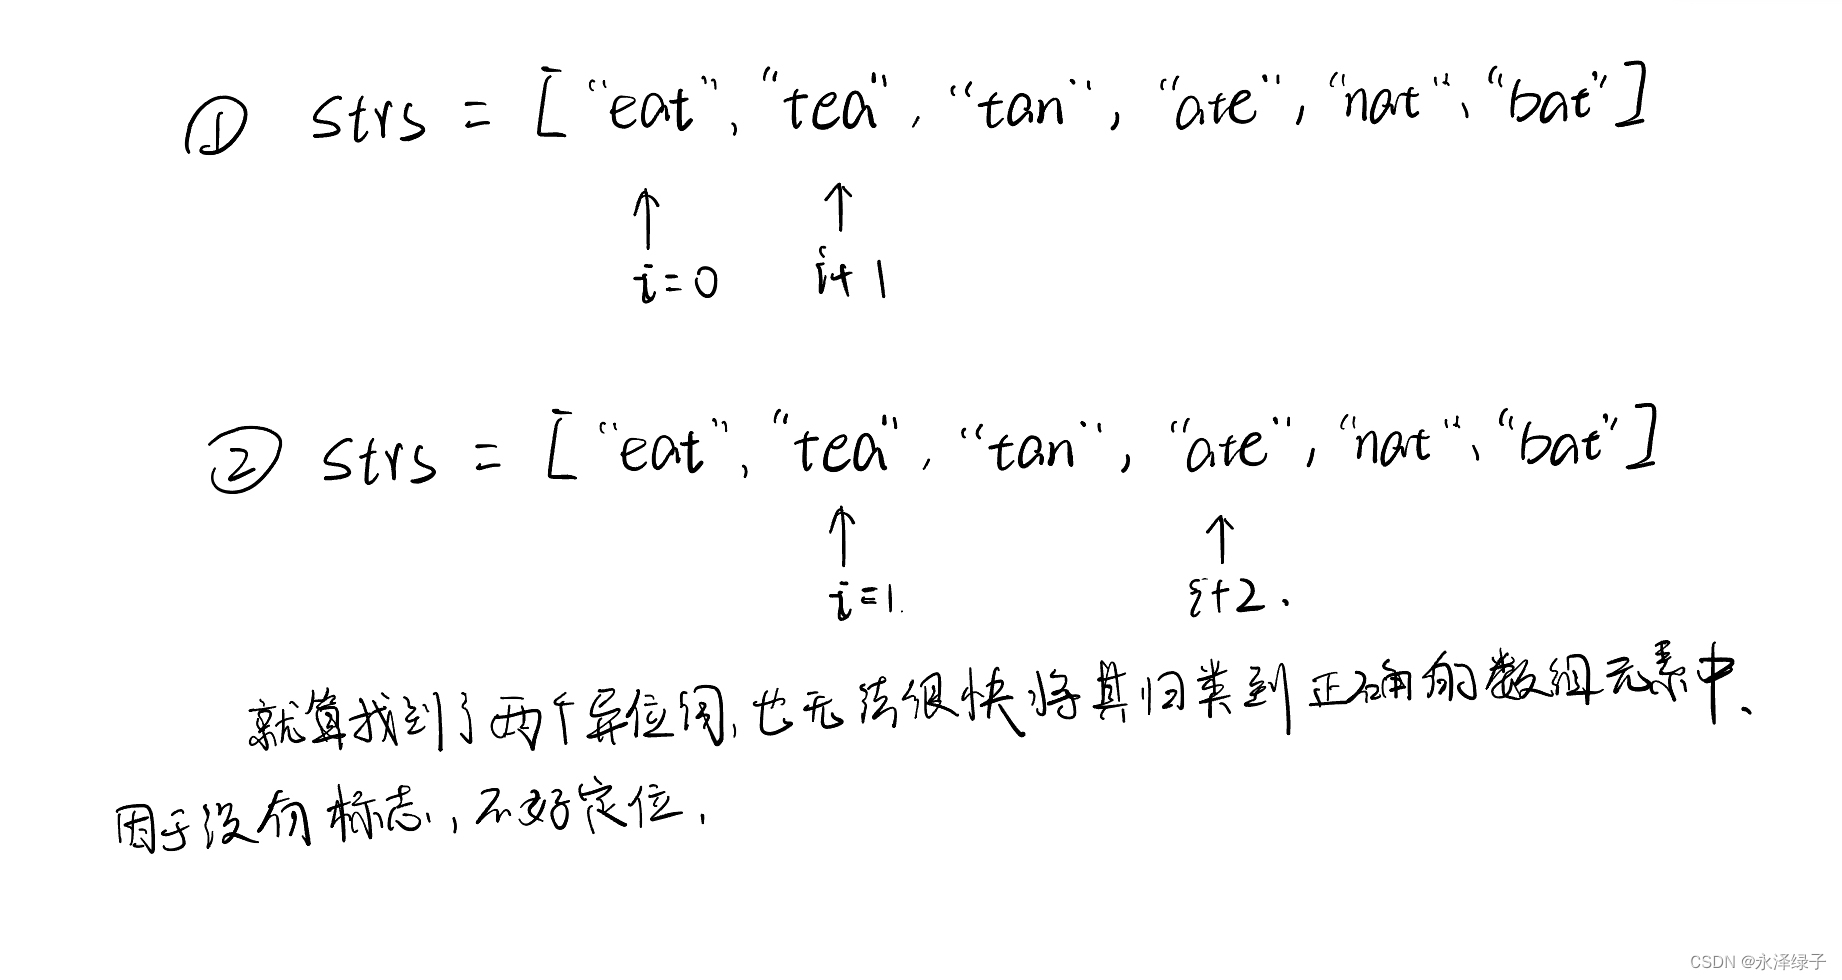 ① strs = [ "eat", "tea", "tan", "ate", "nat"、"bat" ]
i=0 i+1
② strs = [ "eat", "tea", "tan", "ate", "nat"、"bat" ]
i=1. i+2.
就算找到了两个异位词,也无法很快将其归类到正确的数组元素中、
因于没有标志,不好定位.
CSDN @永泽绿子